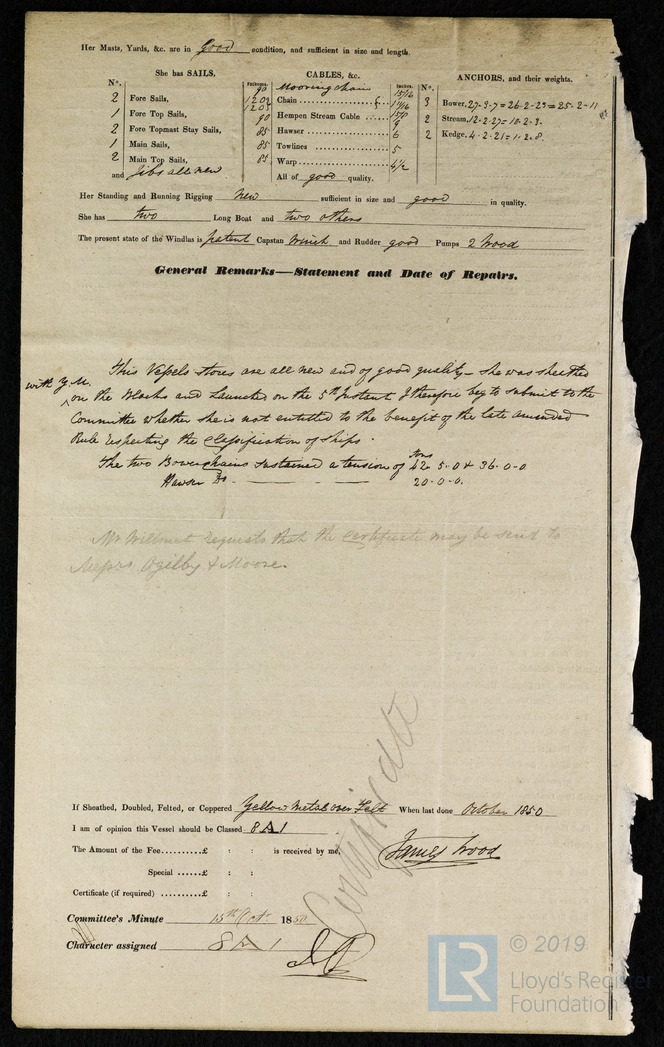 Her Masts, Yards, &c. are in good condition, and sufficient in size and length.
She has SAILS. CABLES, &c. ANCHORS, and their weights.
N°. Fathoms. Inches. N°.
2 Fore Sails, 90 Mooring chain 15/16 3 Bower, 27-3-7 = 26-2-23 = 25-2-11
1 Fore Top Sails, 120 Chain 1 7/16 2 Stream, 12-2-27 = 10-2-3.
2 Fore Topmast Stay Sails, 90 Hempen Stream Cable 9 2 Kedge, 4-2-21 = 1-2-8.
1 Main Sails, 85 Hawser 6
2 Main Top Sails, 85 Towlines 5
and Jibs all new 85 Warp 4½
All of good quality.
Her Standing and Running Rigging New sufficient in size and good in quality.
She has two Long Boat and two others
The present state of the Windlas is patent Capstan Winch and Rudder good Pumps 2 Wood
General Remarks—Statement and Date of Repairs.
This Vessels stores are all new and of good quality – She was sheathed
with Y.M. on the Blocks and launched on the 5th Instant I therefore beg to submit to the
Committee whether she is not entitled to the benefit of the late amended
Rule respecting the Classification of Ships.
The two Bower chains sustained a tension of 42-5-0 & 36-0-0 Tons
Hawser Do. — — — 20-0-0.
Mr Willmot requests that the Certificate may be sent to
Messrs Ogilby & Moore.
If Sheathed, Doubled, Felted, or Coppered Yellow Metal over Felt When last done October 1850
I am of opinion this Vessel should be Classed 8 A 1
The Amount of the Fee..........£ : : is received by me,
James Wood
Special ......£ : :
Certificate (if required) ..........£ : :
Certificate
Committee's Minute 15th Oct. 1850
Character assigned 8 A 1
LR © 2019
Lloyd's Register
Foundation